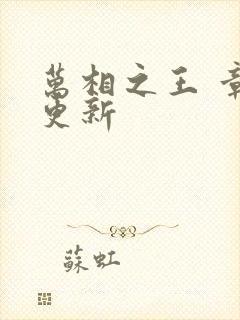 萬相之王
更新
蘇虹